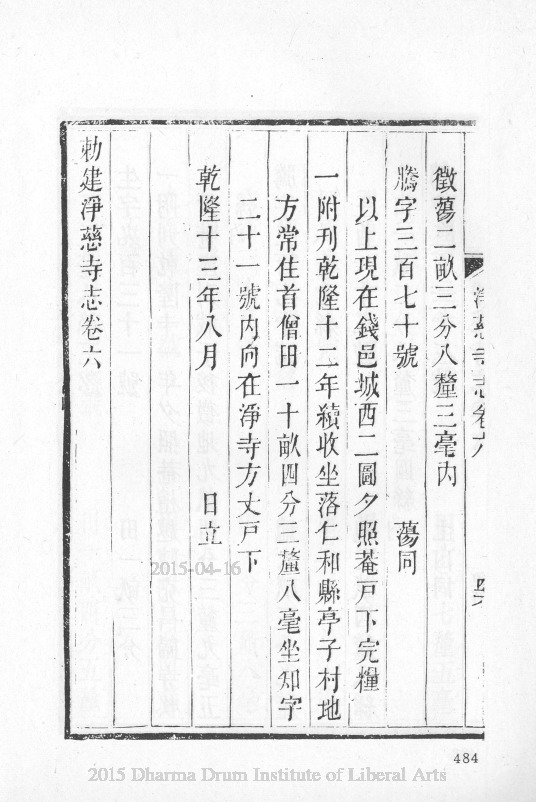 徵蕩二畝三分八釐三毫內
騰字三百七十號　蕩同
以上現在錢邑城西二圖夕照菴戸下完糧
一附刋乾隆十二年續收坐落仁和縣亭子村地
方常住首僧田一十畝四分三釐八毫坐知字
二十一號內向在淨寺方丈戸下
乾隆十三年八月　日立
勅建淨慈寺志卷六
淨慈寺志卷六
484
2015-04-16
2015 Dharma Drum Institute of Liberal Arts